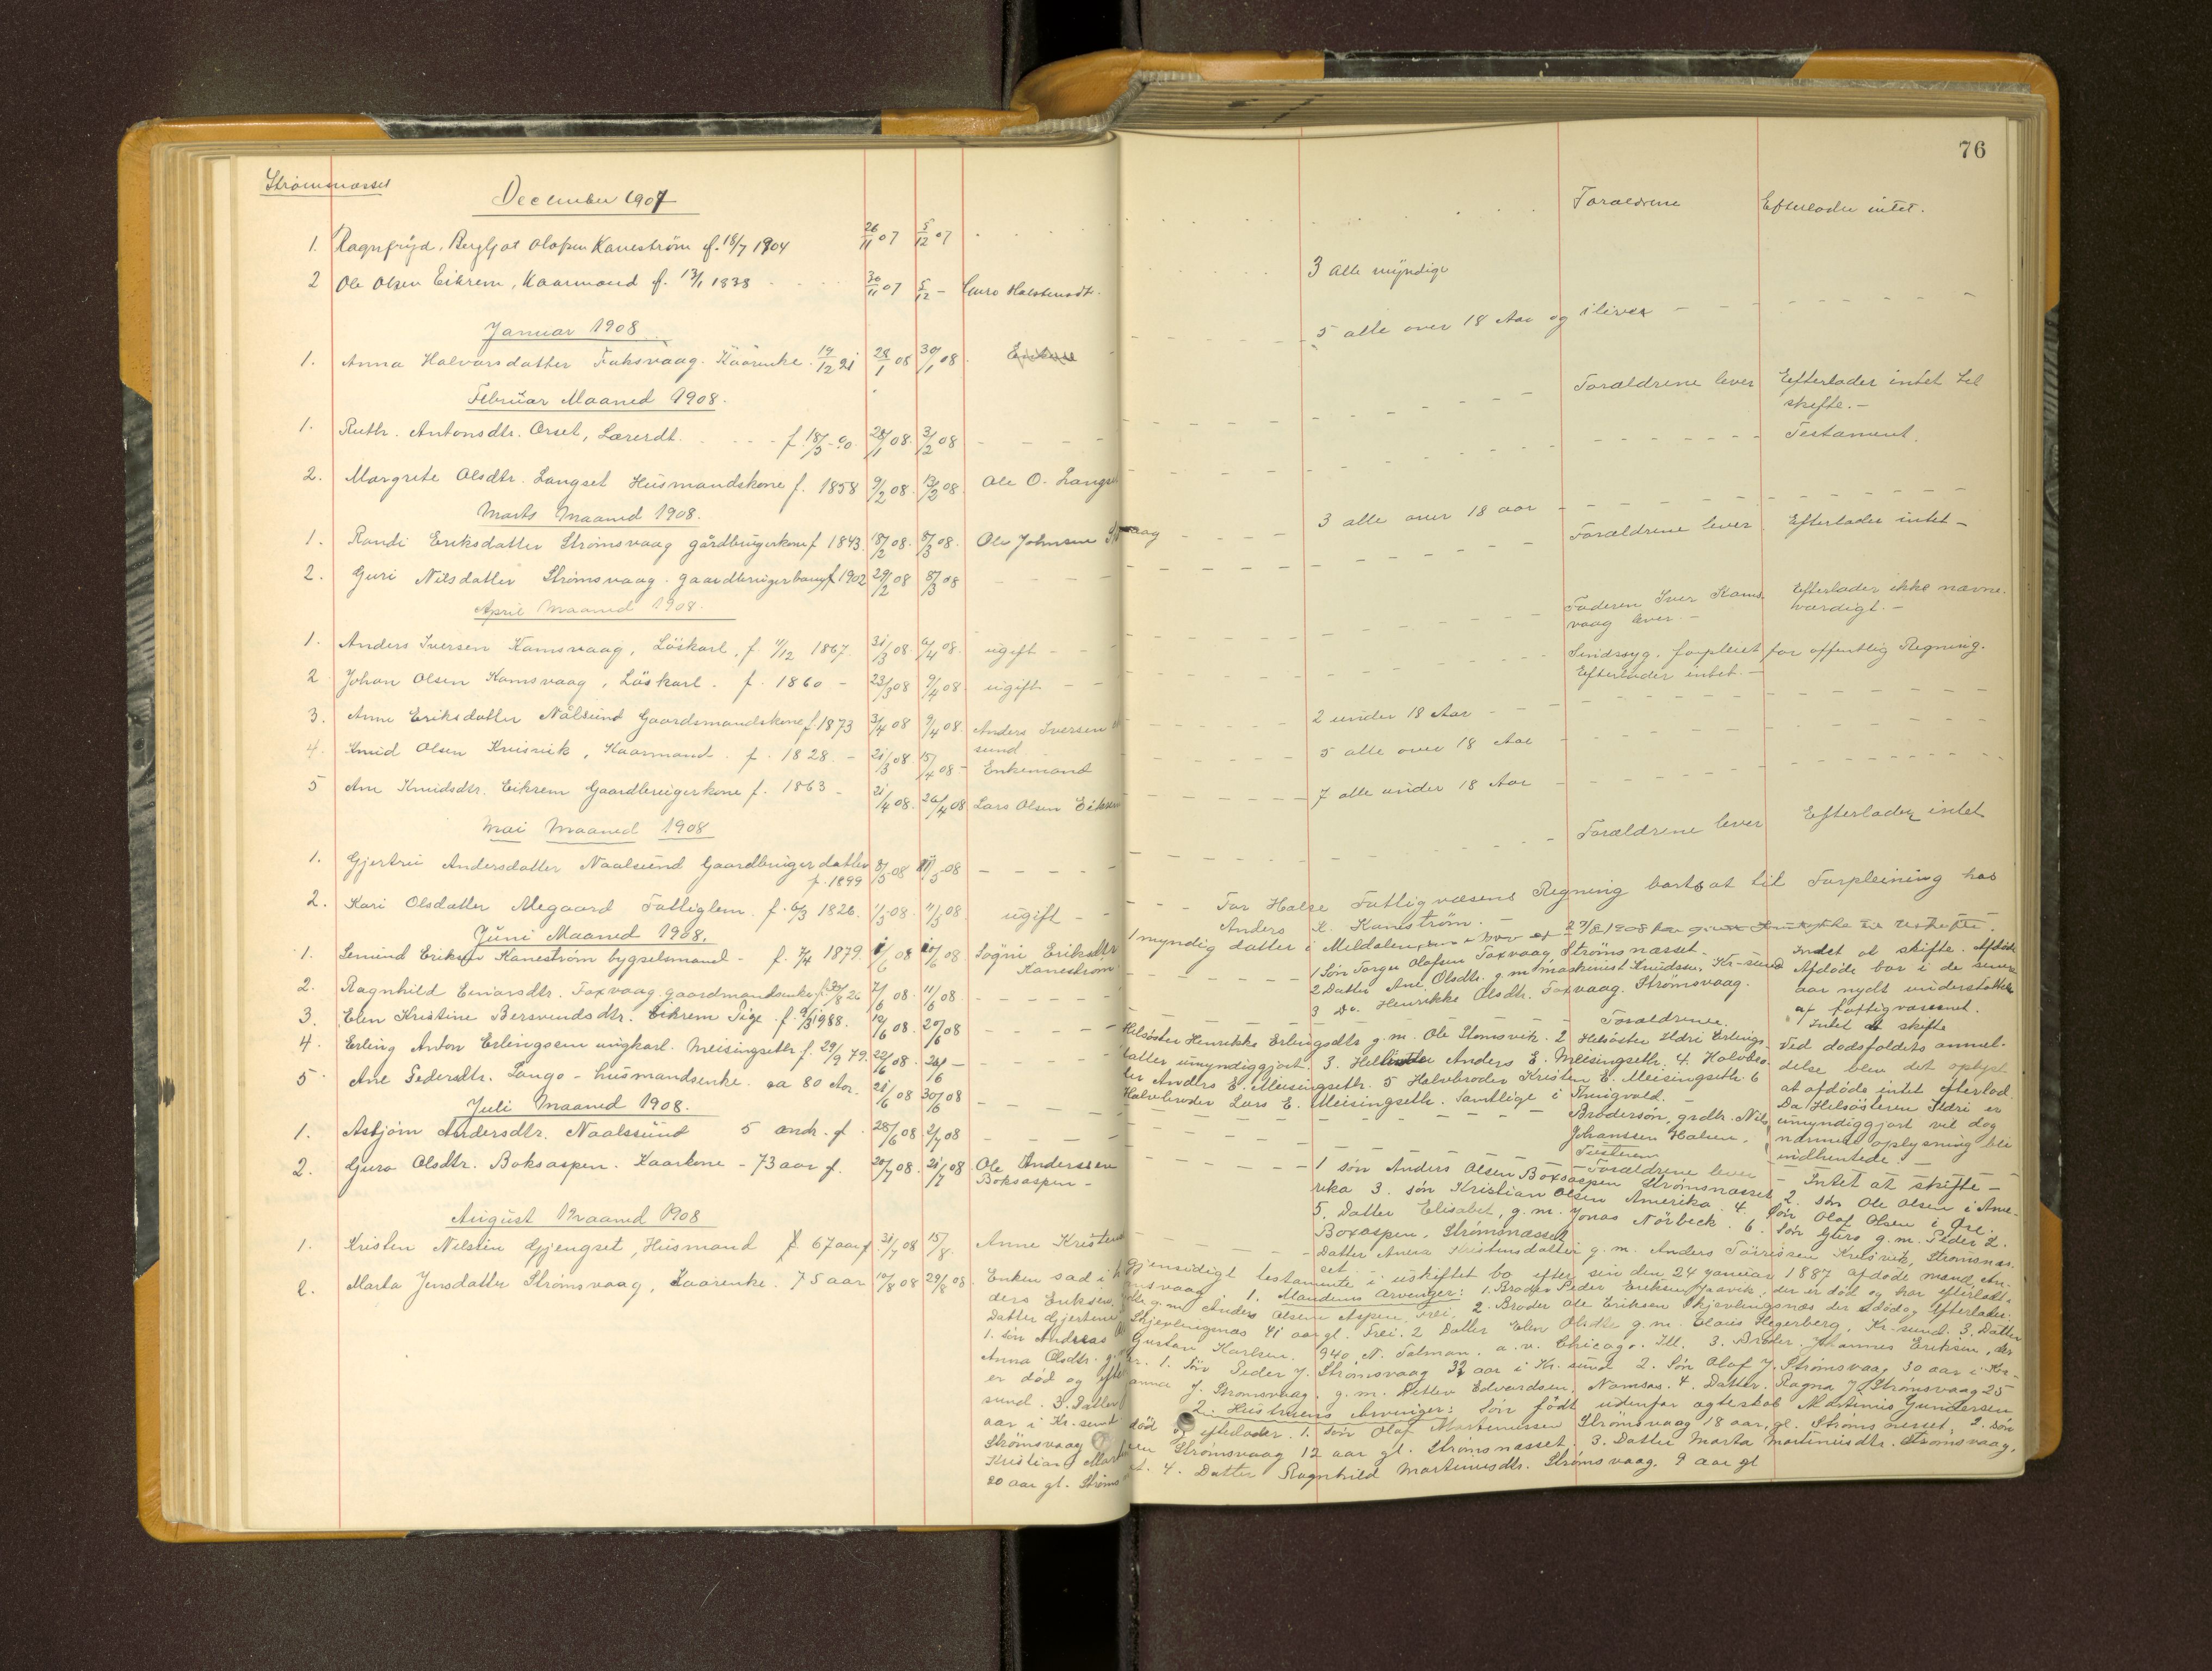 76
Strømsnæsset
December 1907
Forældrene Efterlader intet.
1. Ragnfrid Bergljot Olafsen Kanestrøm f. 18/7 1904 26/11 07 5/12 07
2 Ole Olsen Eikrem, Kaarmand f. 13/1 1838 30/11 07 5/12 - Guro Halstensdt. 3 alle myndige
Januar 1908
1. Anna Halvarsdatter Fuksvaag Kaarenke 19/12 21 28/1 08 30/1 08 5 alle over 18 Aar og ilive
Februar Maaned 1908.
1. Ruth Antonsdtr. Orset, Lærerdt. f. 18/5 90 28/1 08. 3/2 08 Forældrene lever Efterlader intet til
skifte. -
2. Margrete Olsdtr. Langset Husmandskone f. 1858 9/2 08. 13/2 08. Ole O. Langset Testament.
Marts Maaned 1908.
1. Randi Eriksdatter Strømsvaag gårdbrugerkone f 1843. 18/2 08. 8/3 08. Ole Johnsen 3 alle over 18 aar
2. Guri Nilsdatter Strømsvaag. gaardbrugerbarn f 1902 29/2 08 8/3 08 Forældrene lever Efterlader intet -
April Maaned 1908.
1. Anders Iversen Kamsvaag, Löskarl, f. 11/12 1867. 31/3 08. 6/4 08. ugift - Faderen Iver Kams- Efterlader ikke nævne-
vaag lever. - værdigt. -
2 Johan Olsen Kamsvaag, Löskarl. f. 1860 - 23/3 08 9/4 08. ugift - Sindssyg, forpleiet for offentlig Regning.
Efterlader intet. -
3. Anne Eriksdatter Nålsund Gaardsmandskone f. 1873 3/4 08 9/4 08. Anders Iversen 2 under 18 Aar
sund
4. Knud Olsen Kvisvik, Kaarmand. f. 1828 - 21/3 08. 15/4 08 - Enkemand 5 alle over 18 Aar
5 Ane Knudsdtr. Eikrem Gaardbrugerkone f. 1863 - 21/4 08. 26/4 08 Lars Olsen Eikrem 7 alle under 18 Aar
Mai Maaned 1908
1. Gjertru Andersdatter Naalsund Gaardbrugerdatter 3/5 08 11/5 08 Forældrene lever Efterlader intet
f. 1899
2. Kari Olsdatter Megaard Fattiglem. f. 6/3 1826. 1/5 08. 11/5 08. ugift - For Halse Fattigvæsens Regning bortsat til Forpleining hos
Anders L. Kanestrøm. -
Juni Maaned 1908.
1. Semund Eriksen Kanestrøm bygselsmand - f. 7/4 1879. 1/6 08 10/6 08 Sögni Eriksdtr 1 myndig datter i Meldalen
Kanestrøm
2. Ragnhild Einarsdtr. Foxvaag. gaardmandsenke f. 30/8 26 7/6 08. 11/6 08. 1 Søn Torger Olafsen Foxvaag Strømsnæsset. Intet at skifte. Afdøde
2 Datter Ane Olsdtr. g. m. maskinist Knudsen, Kr-sund Afdøde har i de senere
3 Do. Henrikke Olsdtr. Foxvaag. Strømsvaag. aar nydt understøttelse
af fattigvæsenet.
3. Elen Kristine Bersvendsdtr. Eikrem Pige. f. 9/3 1988. 10/6 08. 20/6 08 Forældrene. Intet at skifte
4. Erling Anton Erlingsen ungkarl. Meisingseth f. 29/9 79. 22/6 08. 26/6 - Helsøster Henrikke Erlingsdtr g. m. Ole Stomsvik. 2 Helsöster Ildri Erlings- Ved dødsfaldets anmel-
datter umyndiggjort. 3. Anders E. Meisingseth. 4. Halvbro- delse blev det oplyst
der Anders E. Meisingseth. 5 Halvbroder Kristen E. Meisingseth. 6 at afdøde intet efterlod.
Halvbroder Lars E. Meisingseth. Samtlige i Thingvold. - Da Helsösteren Ildri er
5 Ane Pedersdtr. Lango - husmandsenke. ca 80 Aar. 21/6 08 30/6 08 Brodersøn, grdbr. Nils umyndiggjort vil dog
Johanssen Halsen, nærmere oplysning bli
indhentede.
Juli Maaned 1908.
1. Asbjørn Andersdtr. Naalssund 5 mdr. gl 28/6 08 2/7 08 Forældrene lever - Intet at skifte -
2. Guro Olsdtr. Boksaspen. Kaarkone - 73 aar gl. 20/7 08. 21/7 08 Ole Anderssen 1 søn Anders Olsen Boxsaspen Strømsnæsset, 2. søn Ole Olsen i Ame-
Boksaspen - rika 3. søn Kristian Olsen Amerika. 4. Søn Olaf Olsen i Øre.
5. Datter Elisabet, g. m. Jonas Nörbeck. 6. Guro g. m. Peder 2.
Boxaspen, Strømsnæsset
August Maaned 1908
1. Kristen Nilssen Gjengset, Husmand 67 aar gl 31/7 08 15/8. Anne Kristens Datter Kristensdatter g. m. Anders Kvisvik, Strømsnæs-
set
2. Marta Jensdatter Strømsvaag, Kaarenke. 75 aar 10/8 08 29/8 08. Enken sad i h gjensidigt testamente i uskiftet bo efter sin den 24 januar 1887 afdøde mand, An-
ders Eriksen, msvaag. 1. Mandens Arvinger: 1. Broder Peder Eriksen Jaavik, der er död og har efterladt:
Datter Gjertine g. m. Anders Olsen Aspen, Frei. 2. Broder Ole Eriksen Skjevlingsnæs der er død og efterlader:
1. søn Andreas Skjevlingsnæs 41 aar gl. Frei. 2 Datter Elen Olsdtr g. m. Claus Hegerberg, Kr-sund. 3. Datter
Anna Olsdtr. g. m. Gustav Karlsen. 940 N. Talman. a. v. Chicago. Ill. 3. Broder Johannes Eriksen, der
er død og efter 1. Søn Peder J. Strømsvaag 32 aar i Kr. sund 2. Søn Olaf J. Strømsvaag 30 aar i Kr-
sund. 3. Datter anna J. Strømsvaag, g. m. Detlev Edvardsen, Namsos. 4. Datter Ragna J. Strømsvaag 25
aar i Kr. sund 2. Hustruens Arvinger: Søn født udenfor ægteskab Martinus Gundersen
Strømsvaag død og efterlader. 1. søn Olaf Martinussen Strømsvaag 18 aar gl. Strømsnesset. 2. søn
Kristian Mart sen Strømsvaag 12 aar gl. Strømsnæsset. 3. Datter Marta Martinusdtr. Strømsvaag,
20 aar gl. Strøms 4. Datter Ragnhild Martinusdtr. Strømsvaag, 9 aar gl